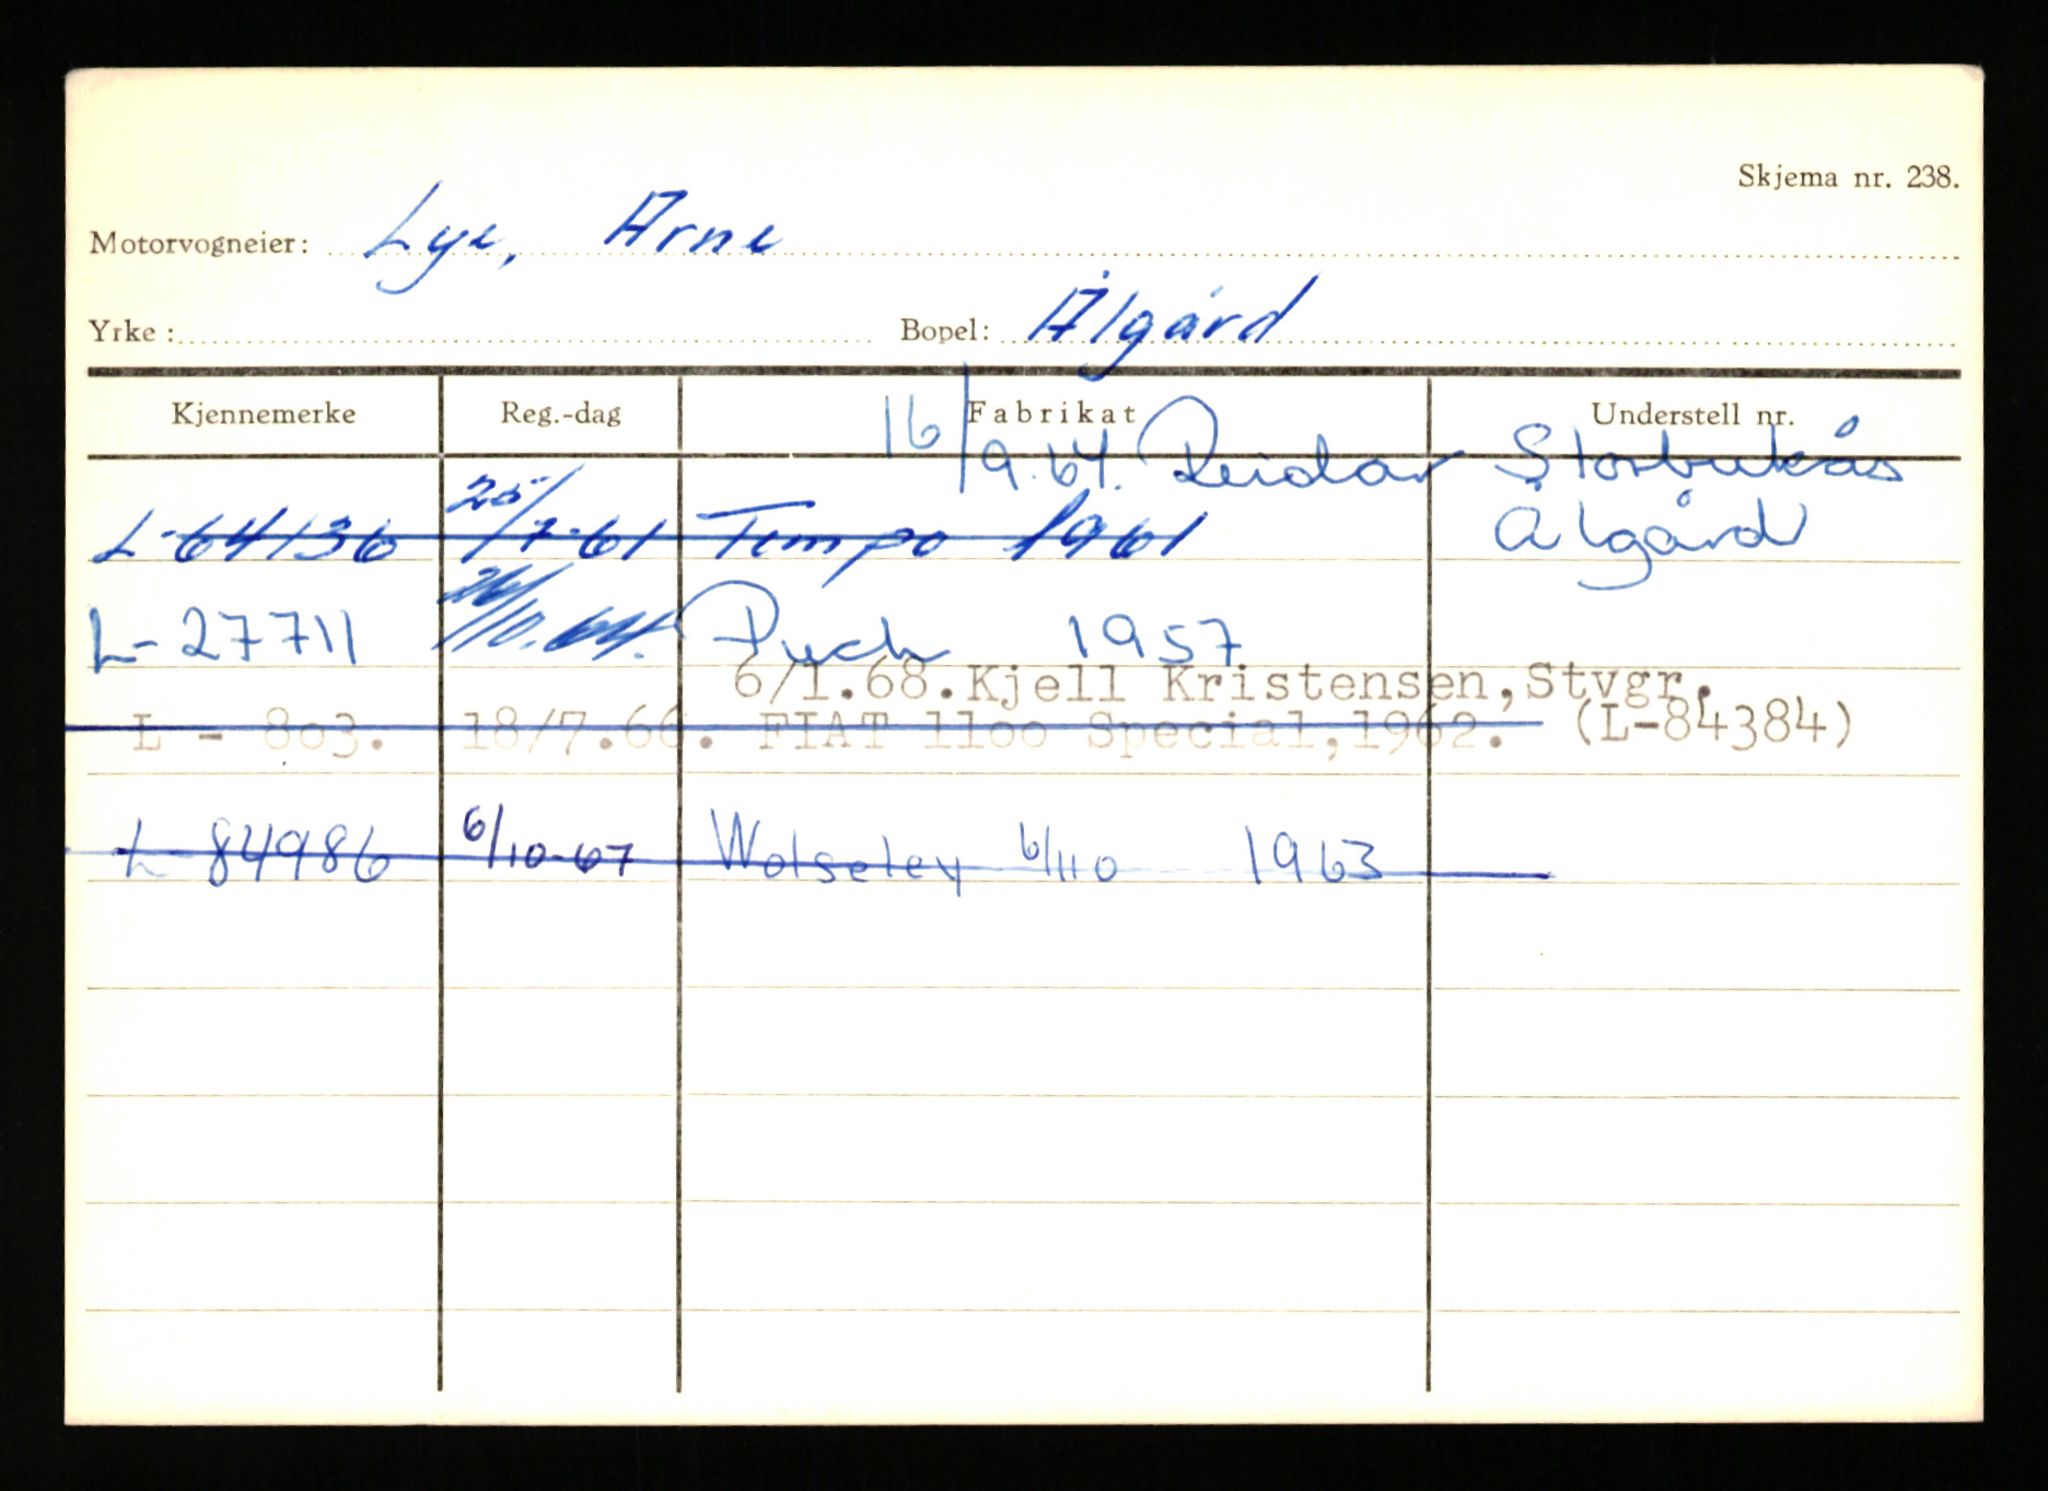 Skjema nr. 238.
Motorvogneier: Lye, Arne
Yrke: Bopel: Ålgård
Kjennemerke Reg.-dag Fabrikat Understell nr.
16/9.64. Reidar Storbukås
Ålgård
L-64136 25/7-61 Tempo 1961
L-27711 /10.64. Puch 1957
6/1.68.Kjell Kristensen,Stvgr.
L - 803. 18/7.66. FIAT 1100 Special,1962. (L-84384)
L-84986 6/10-67 Wolseley 6/110 1963